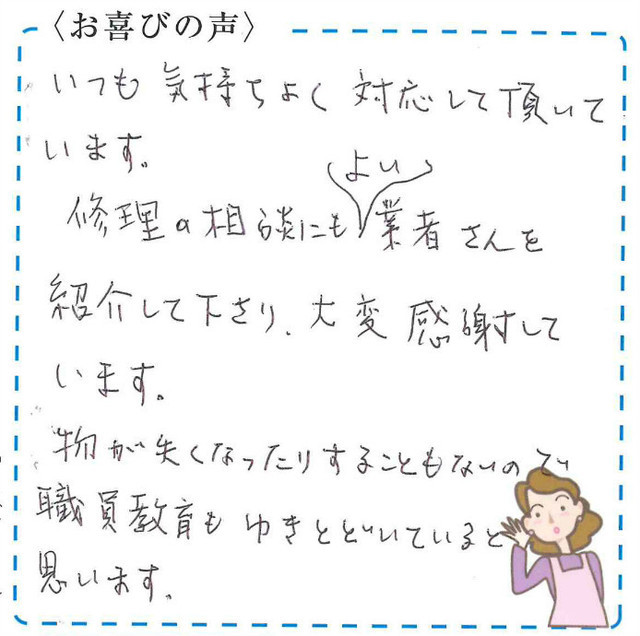 〈お喜びの声〉
いつも気持ちよく対応して頂いて
います。
よい
修理の相談にも業者さんを
紹介して下さり、大変感謝して
います。
物が失くなったりすることもないので
職員教育もゆきとどいていると
思います。